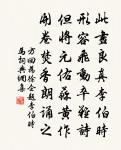 此畫良真李伯時
形容飛動卒難詩
但將元祐蘇黃作
開卷焚香朗誦之
方回為徐企題李伯時
馬詞典網集